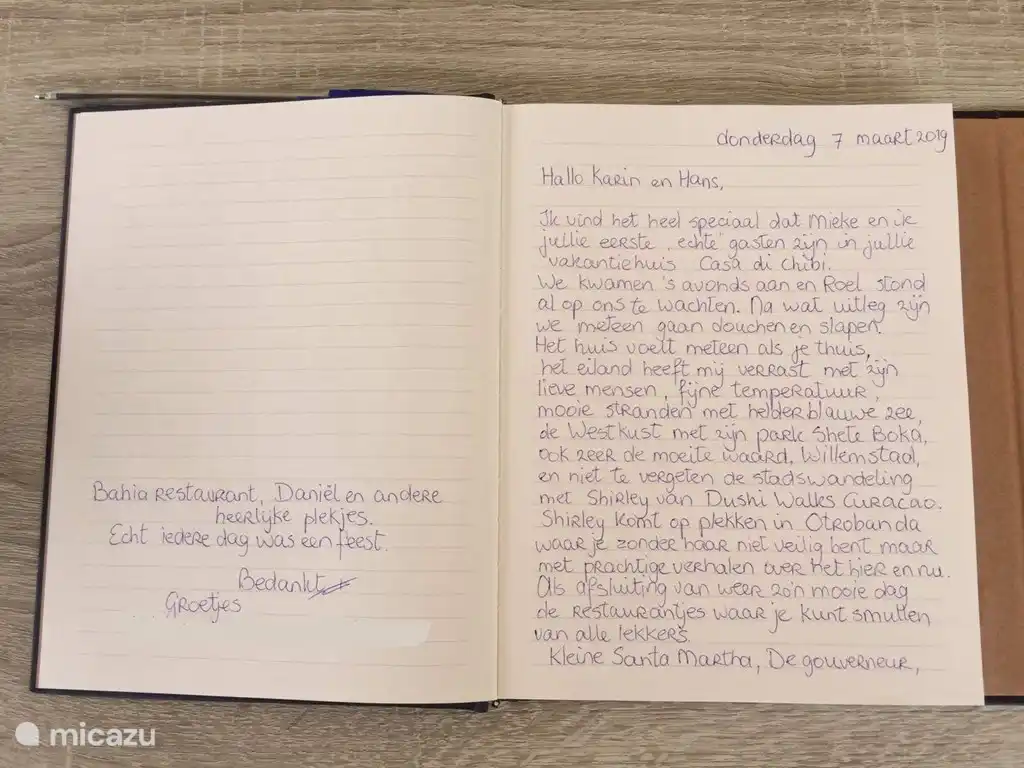 donderdag 7 maart 2019
Hallo Karin en Hans,
Ik vind het heel speciaal dat Mieke en ik
jullie eerste 'echte' gasten zijn in jullie
vakantiehuis Casa di Chibi.
We kwamen 's avonds aan en Roel stond
al op ons te wachten. Na wat uitleg zijn
we meteen gaan douchen en slapen.
Het huis voelt meteen als je thuis,
het eiland heeft mij verrast met zijn
lieve mensen, fijne temperatuur,
mooie stranden met helder blauwe zee,
de Westkust met zijn park Shete Boka,
ook zeer de moeite waard, Willemstad,
en niet te vergeten de stadswandeling
met Shirley van Dushi Walks Curacao.
Shirley komt op plekken in Otrobanda
waar je zonder haar niet veilig bent maar
met prachtige verhalen over het hier en nu.
Als afsluiting van weer zo'n mooie dag
de restaurantjes waar je kunt smullen
van alle lekkers.
Kleine Santa Martha, De gouverneur,
Bahia restaurant, Daniël en andere
heerlijke plekjes.
Echt iedere dag was een feest.
Bedankt
Groetjes
micazu